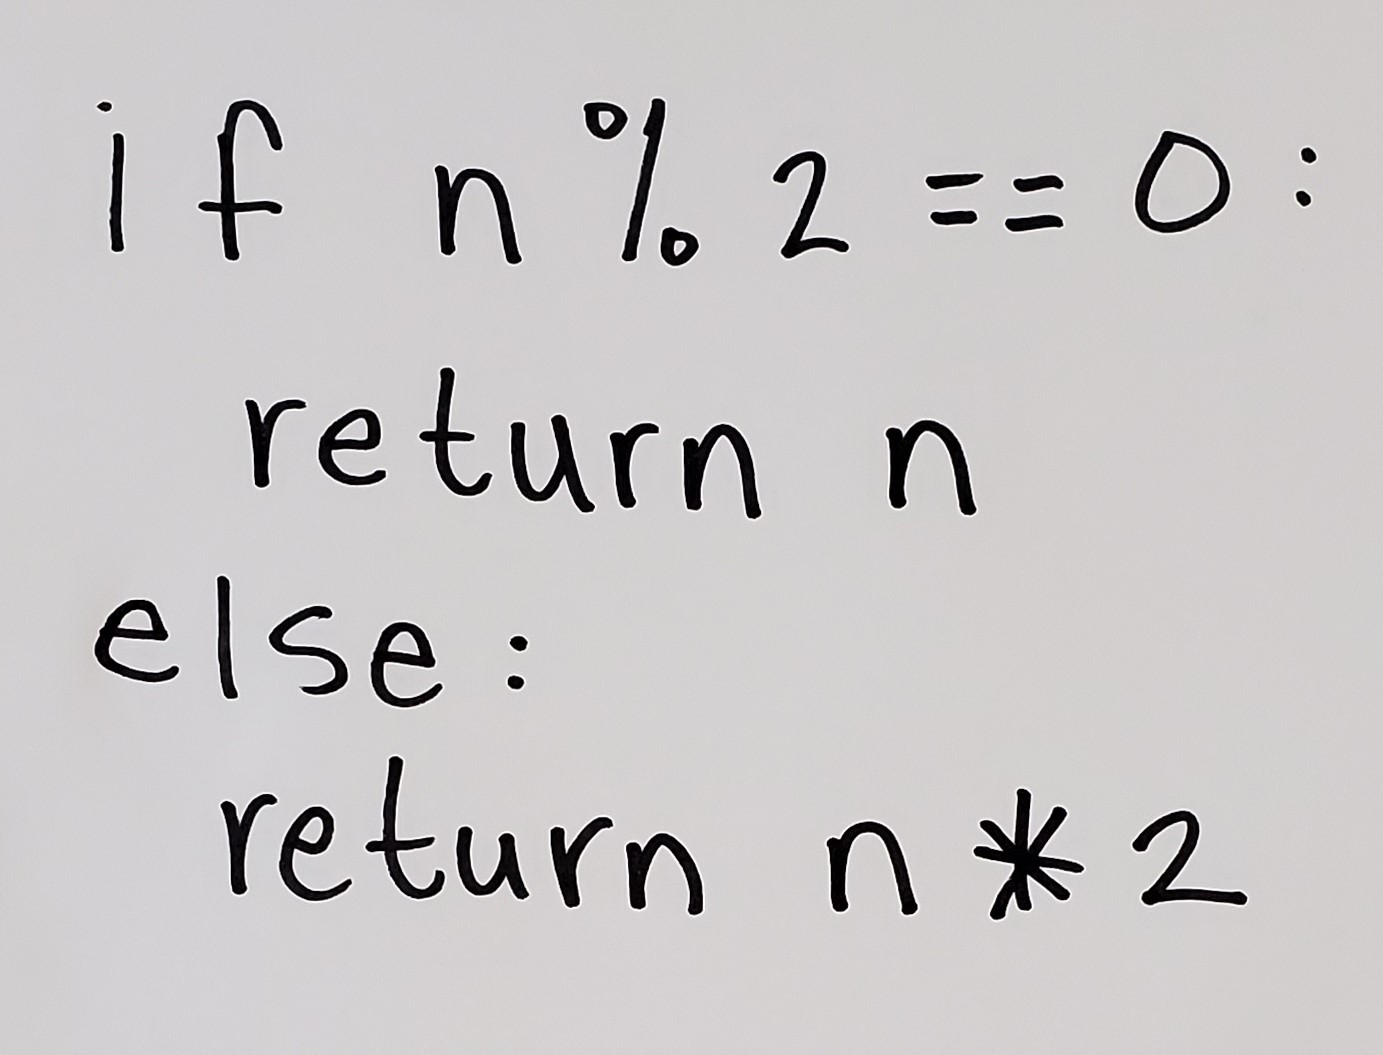 if n % 2 == 0:
return n
else:
return n * 2